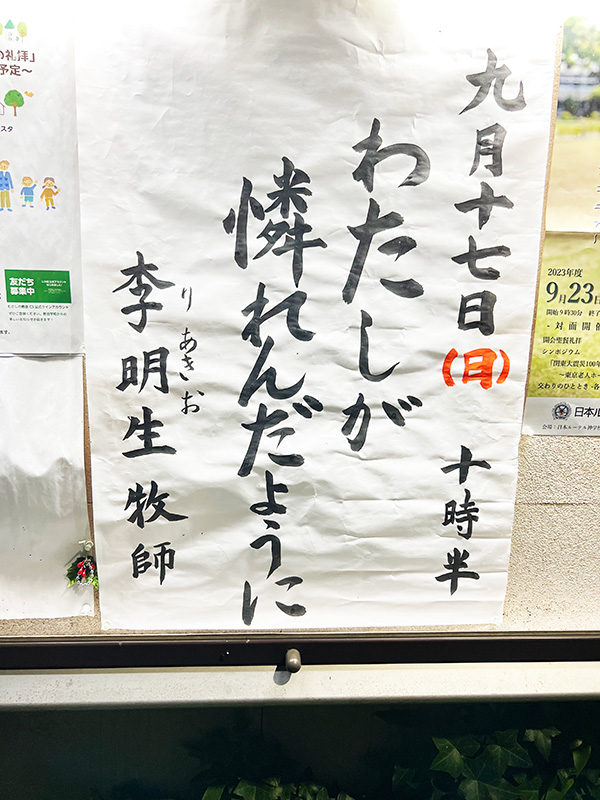 九月十七日(日) 十時半
わたしが
憐れんだように
李明生 牧師
り あきお
の礼拝」
予定～
スタ
友だち
募集中
2023年度
9月23日
開始9時30分 終了
- 対面開催
開会聖餐礼拝
シンポジウム
「関東大震災100年
～東京老人ホー
交わりのひととき - 各
日本ル
会場：日本ルーテル神学校